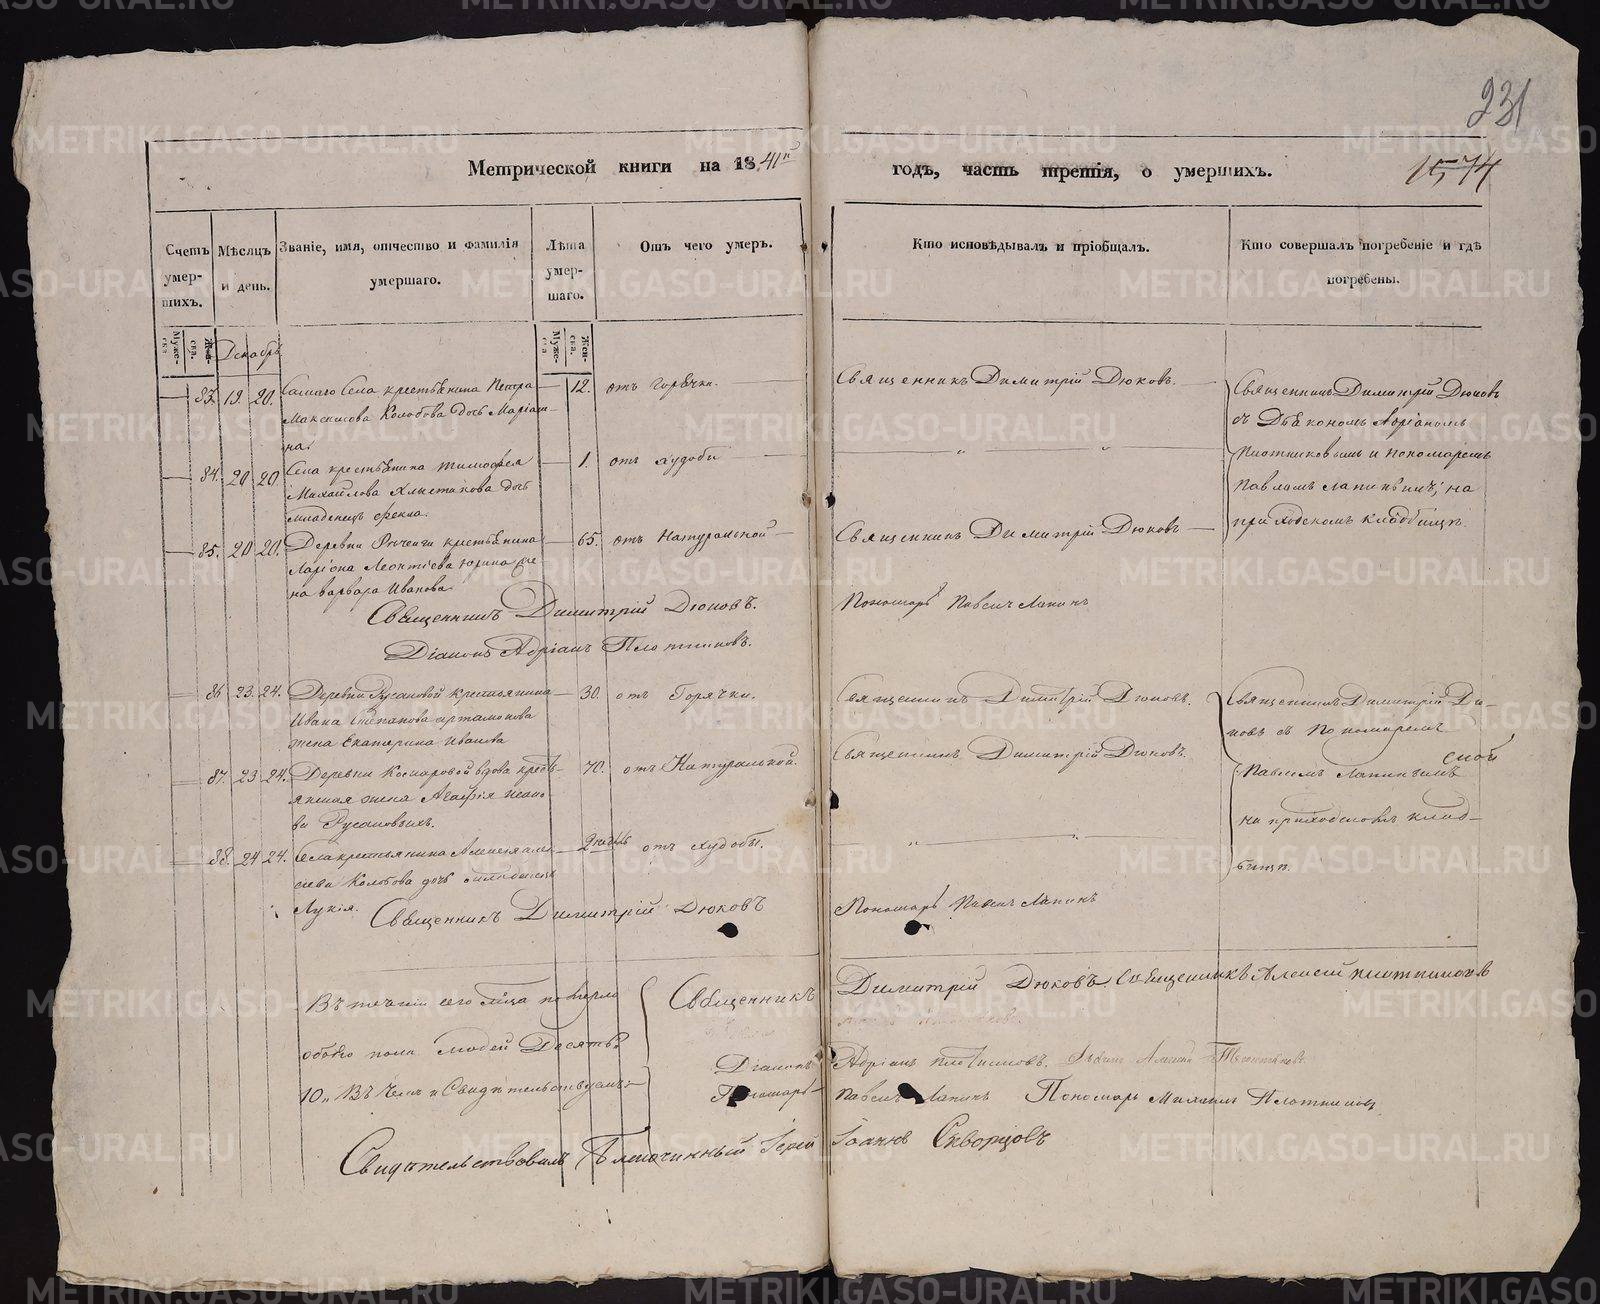 231
Метрической книги на 1841й годъ, часть третія, о умершихъ.
1574
Счетъ умер-шихъ.
Мѣсяцъ и день.
Званіе, имя, отчество и фамилія умершаго.
Лѣта умер-шаго.
Отъ чего умеръ.
Кто исповѣдывалъ и пріобщалъ.
Кто совершалъ погребеніе и гдѣ погребены.
Муже-ска
Жен-ска.
Декабрь
Муже-ска
Жен-ска.
83. 19. 20. Самаго Села крестьянина Петра — 12. отъ горячки. Священникъ Димитрій Дюковъ.
Максимова Колобова дочь Маріам-
на.
Священникъ Димитрій Дюковъ
съ Діакономъ Адріаномъ
Плотниковымъ и пономаремъ
Павломъ Лапинымъ; на
приходскомъ кладбищѣ.
84. 20 20. Села крестьянина Тимофея — 1. отъ худобы — „ „
Михайлова Хлыстанова дочь
младенецъ Фекла.
85. 20 20. Деревни крестьянина — 65. отъ Натуральной — Священникъ Димитрій Дюковъ —
Ларіона Леонтіева Юрина же
на Варвара Иванова
Священникъ Димитрій Дюковъ. Пономарь Павелъ Лапинъ
Діаконъ Адріанъ Плотниковъ.
86. 23. 24. Деревни Русановой крестьянина — 30. отъ Горячки. Священникъ Димитрій Дюковъ.
Ивана Степанова Артамонова
жена Екатерина Иванова
Священникъ Димитрій Дю-
ковъ съ Пономаремъ
Павломъ Лапинымъ
на приходскомъ клад-
бищѣ.
87. 23 24. Деревни Комаровой вдова кресть- 70. отъ Натуральной. Священникъ Димитрій Дюковъ.
янская жена Агафія
Русановыхъ.
88. 24 24. Села крестьянина Алексѣя — отъ худобы. „ „
Колобова дочь младенецъ
Лукія.
Священникъ Димитрій Дюковъ Пономарь Павелъ Лапинъ
Въ теченіи сего мѣсяца померло Священникъ Димитрій Дюковъ Священникъ Алексѣй Плотниковъ
обоего пола людей Десять Діаконъ Адріанъ Плотниковъ.
10„ Въ чемъ и Свидѣтельствуемъ: Пономарь Павелъ Лапинъ Пономарь Михаилъ Плотниковъ
Свидѣтельствовалъ Благочинный Іерей Іоаннъ Скворцовъ
METRIKI.GASO-URAL.RU